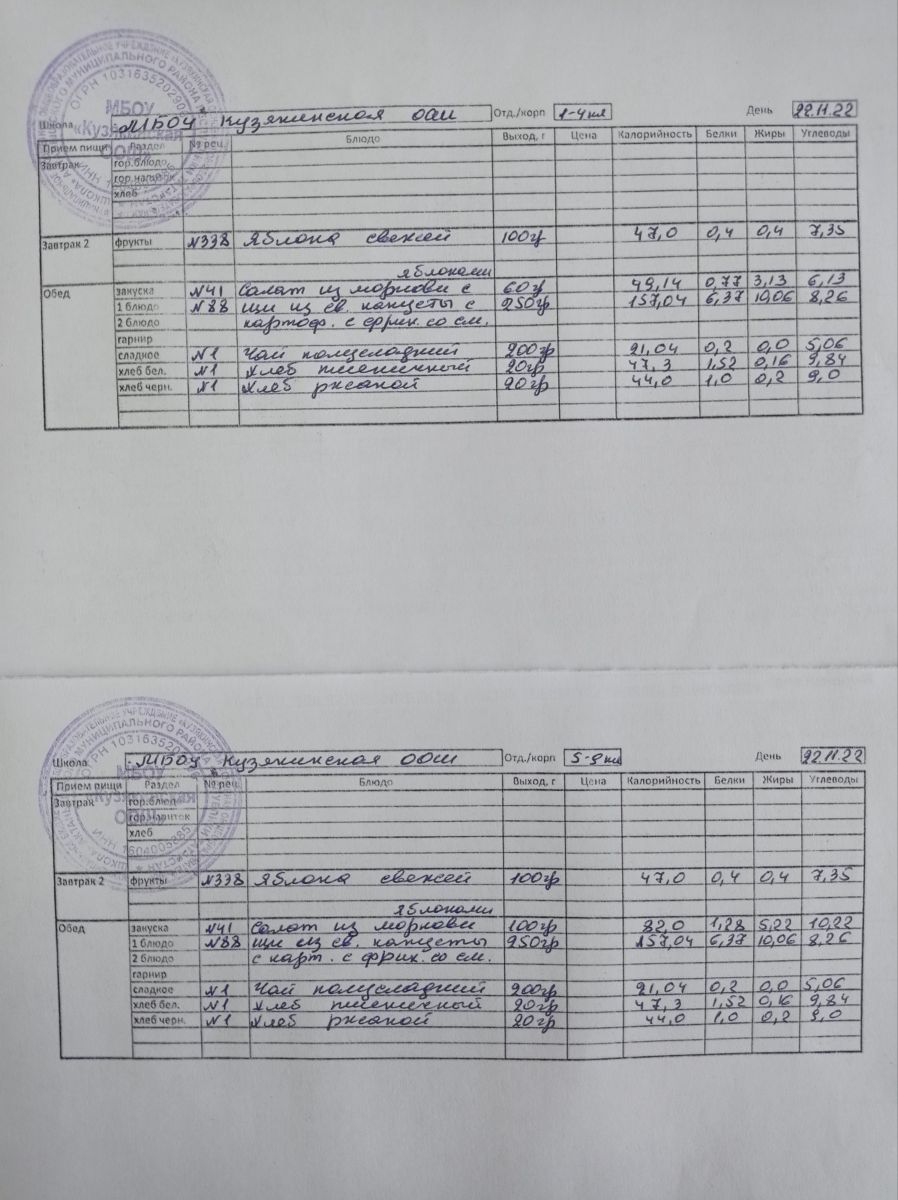 МБОУ
«Кузякинская
ООШ»
ОГРН 103163520290
Школа МБОУ Кузякинская ООШ Отд./корп 1-4 кл День 22.11.22
Прием пищи Раздел № рец. Блюдо Выход, г Цена Калорийность Белки Жиры Углеводы
Завтрак гор.блюдо
гор.напиток
хлеб
Завтрак 2 фрукты №338 Яблоко свежей 100гр 47,0 0,4 0,4 7,35
яблоками
Обед закуска №41 Салат из моркови с 60гр 49,14 0,77 3,13 6,13
1 блюдо №88 щи из св. капусты с 250гр 157,04 6,37 10,06 8,26
2 блюдо картоф. с фрик. со см.
гарнир
сладкое №1 Чай полусладкий 200гр 21,04 0,2 0,0 5,06
хлеб бел. №1 Хлеб пшеничный 20гр 47,3 1,52 0,16 9,84
хлеб черн. №1 Хлеб ржаной 20гр 44,0 1,0 0,2 9,0
МБОУ
«Кузякинская
ООШ»
ИНН 1604005885
Школа МБОУ Кузякинская ООШ Отд./корп 5-9 кл День 22.11.22
Прием пищи Раздел № рец. Блюдо Выход, г Цена Калорийность Белки Жиры Углеводы
Завтрак гор.блюдо
гор.напиток
хлеб
Завтрак 2 фрукты №338 Яблоко свежей 100гр 47,0 0,4 0,4 7,35
яблоками
Обед закуска №41 Салат из моркови 100гр 82,0 1,28 5,22 10,22
1 блюдо №88 щи из св. капусты 250гр 157,04 6,37 10,06 8,26
2 блюдо с карт. с фрик. со см.
гарнир
сладкое №1 Чай полусладкий 200гр 21,04 0,2 0,0 5,06
хлеб бел. №1 Хлеб пшеничный 20гр 47,3 1,52 0,16 9,84
хлеб черн. №1 Хлеб ржаной 20гр 44,0 1,0 0,2 9,0